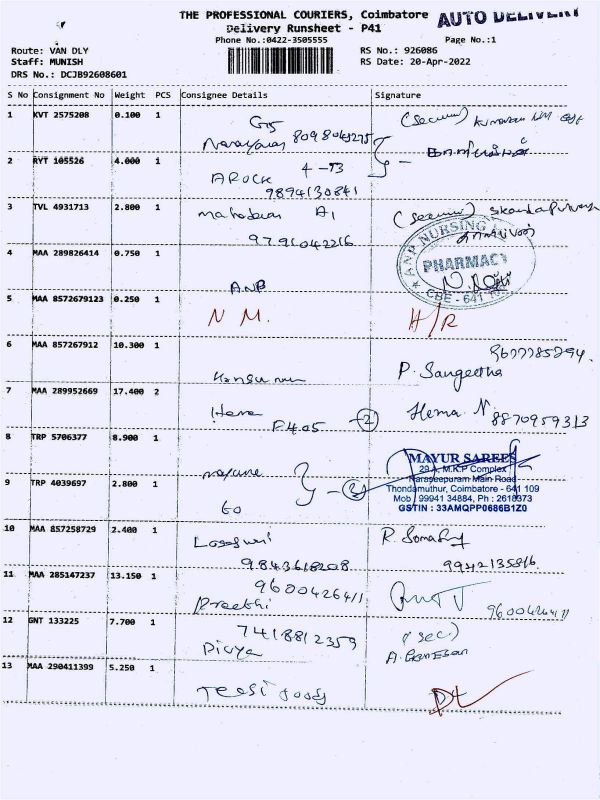 THE PROFESSIONAL COURIERS, Coimbatore
AUTO DELIVERY
Delivery Runsheet - P41
Phone No.:0422-3505555
Page No.:1
Route: VAN DLY
RS No.: 926086
Staff: MUNISH
RS Date: 20-Apr-2022
DRS No.: DCJB92608601
S No Consignment No Weight PCS Consignee Details Signature
1 KVT 2575208 0.100 1
G15
Narayanas 8098043275
2 RYT 105526 4.000 1
4-73
A ROCK
9894130841
3 TVL 4931713 2.800 1
Mahadevan A1
9791042216
4 MAA 289826414 0.750 1
ANP NURSING
PHARMACY
CBE - 641
ANP
5 MAA 8572679123 0.250 1
N M. H/R
6 MAA 857267912 10.300 1
9677785294.
P. Sangeetha
7 MAA 289952669 17.400 2
Hema F405 2 Hema N
8870959313
8 TRP 5706377 8.900 1
MAYUR SAREES
29 A, M.K.P Complex
Naraseepuram Main Road
9 TRP 4039697 2.800 1
Thondamuthur, Coimbatore - 641 109
Mob : 99941 34884, Ph : 2618373
GSTIN : 33AMQPP0686B1Z0
10 MAA 857258729 2.400 1
9843618208
9942135816.
11 MAA 285147237 13.150 1
9600426411
Preethi
9600426411
12 GNT 133225 7.700 1
7418812359 (sec)
Divya A. Ganesan
13 MAA 290411399 5.250 1
foods